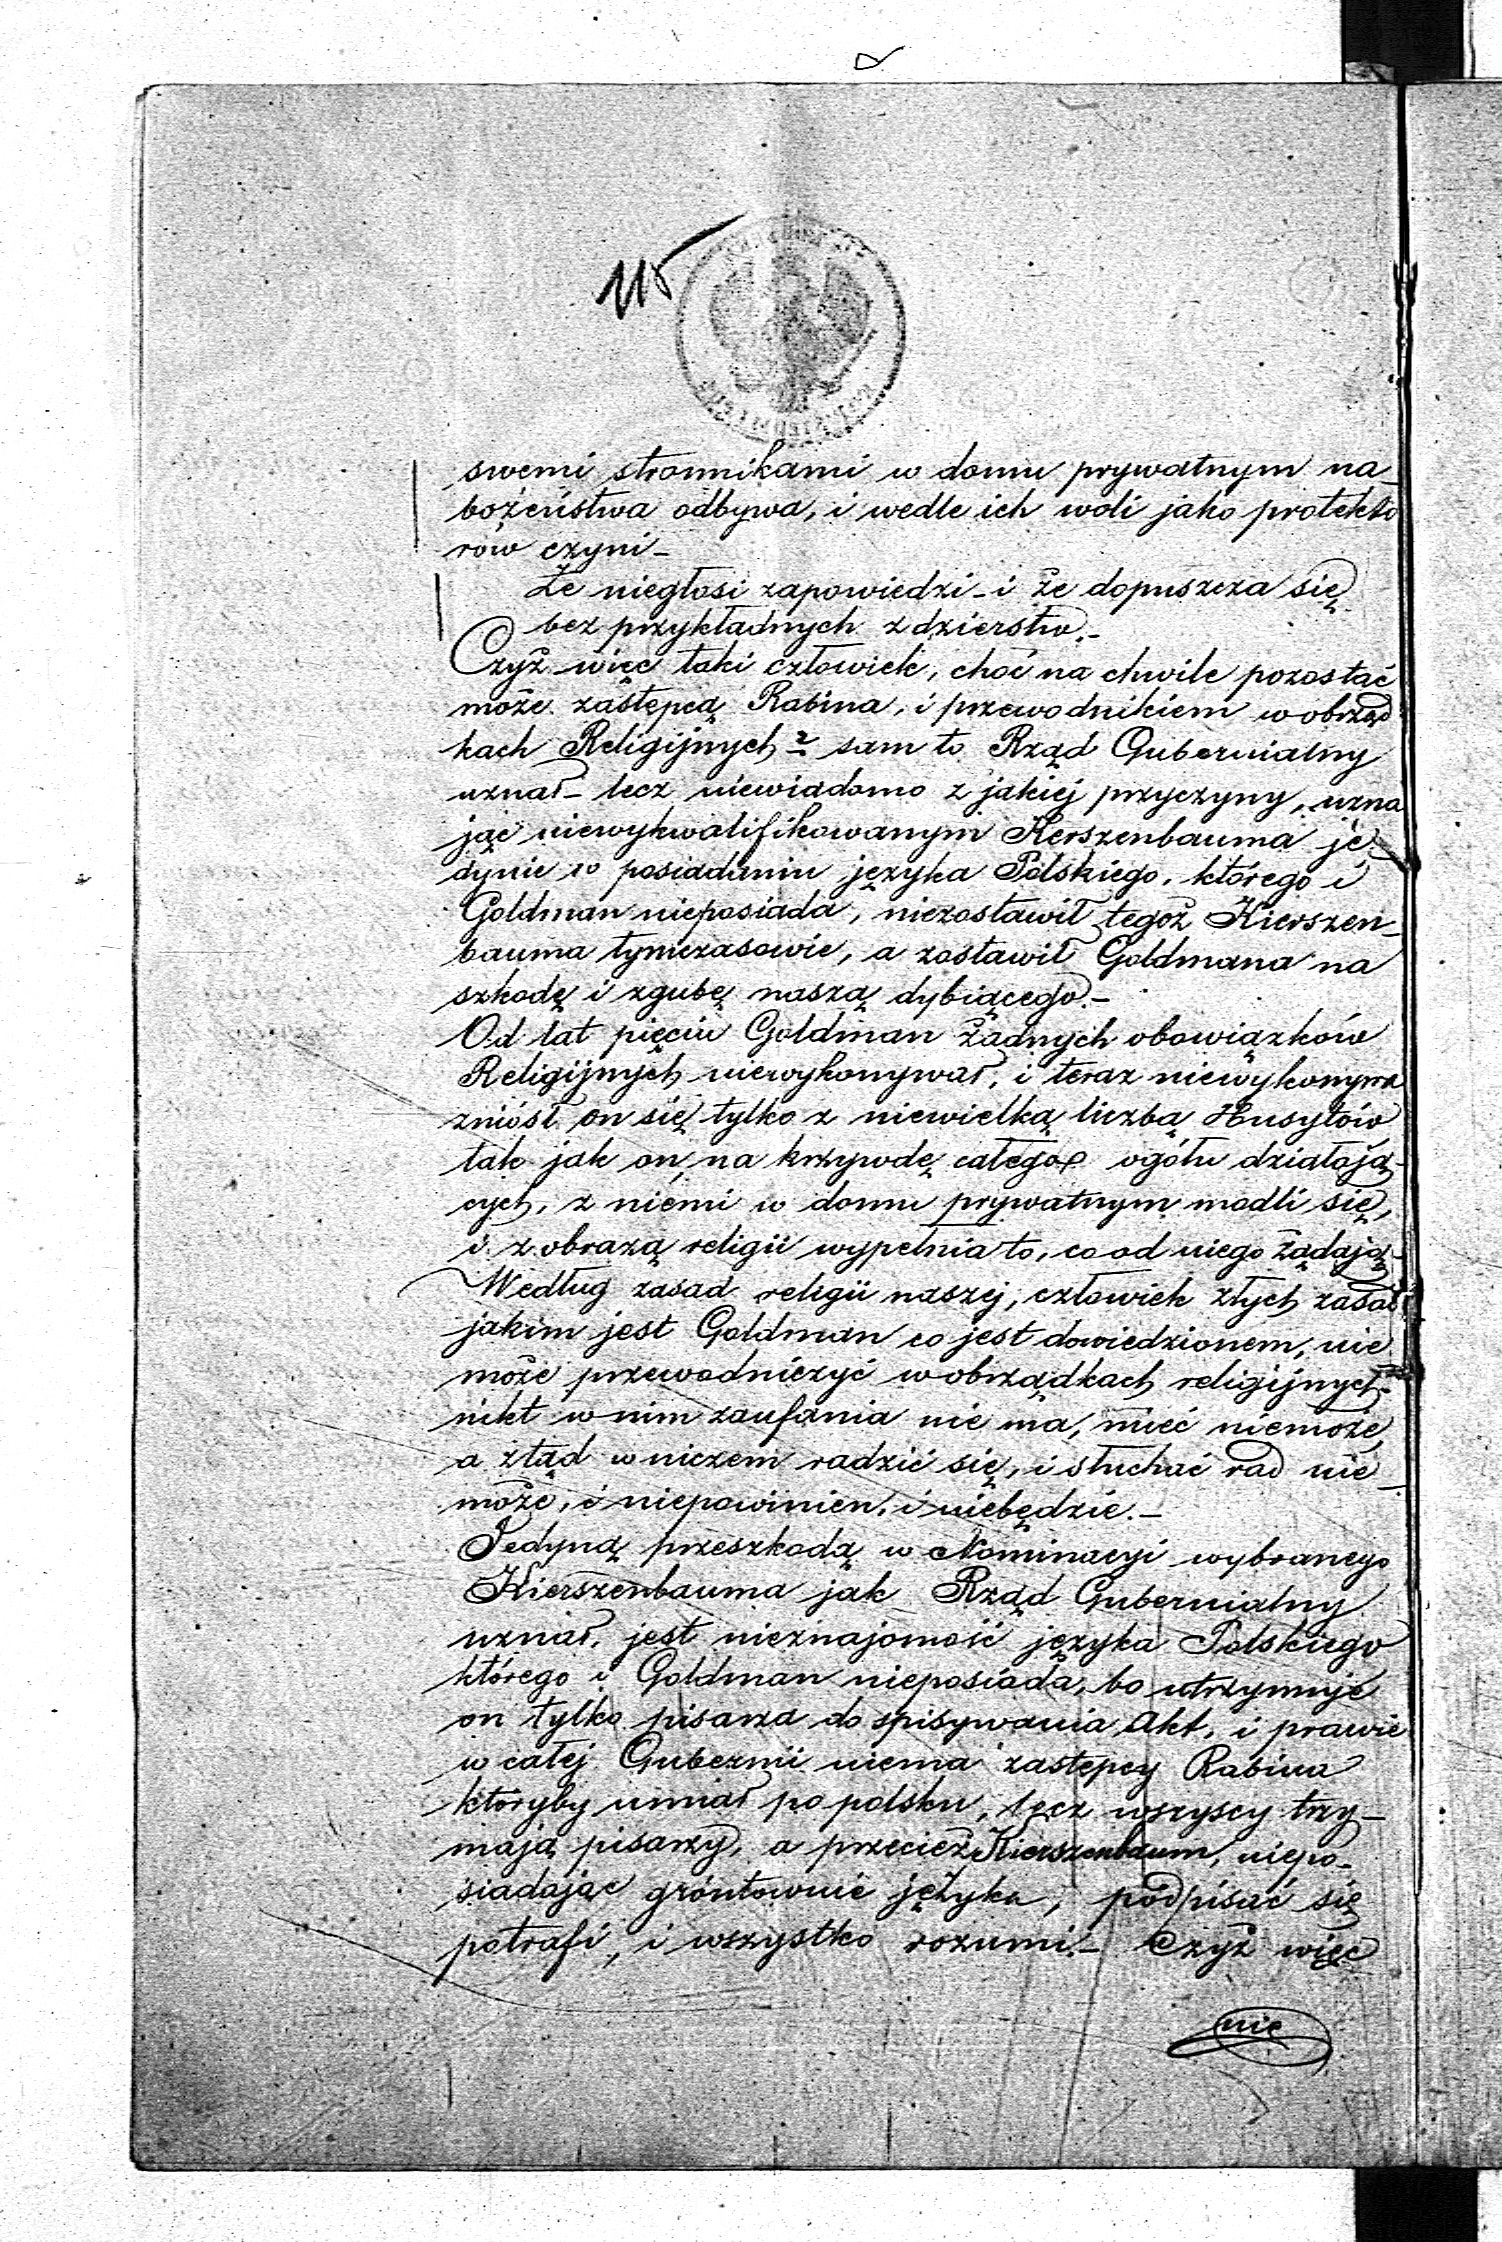 115
swemi stronnikami w domu prywatnym na_
bożeństwa odbywa, i wedle ich woli jako protekto
rów czyni_
Że niegłosi zapowiedzi_ i że dopuszcza się
bez przykładnych zdzierstw._
Czyż więc taki człowiek, choć na chwile pozostać
może zastępcą Rabina, i przewodnikiem w obrząd
kach Religijnych? sam to Rząd Gubernialny
uznał_ lecz niewiadomo z jakiej przyczyny, uzna
jąc niewykwalifikowanym Kerszenbauma je_
dynie w posiadaniu języka Polskiego, którego i
Goldman nieposiada, niezostawił tegoż Kierszen_
bauma tymczasowie, a zostawił Goldmana na
szkodę i zgubę naszą dybiącego._
Od lat pięciu Goldman żadnych obowiązków
Religijnych niewykonywał, i teraz niewykonywa
zniósł on się tylko z niewielką liczbą Husytów
tak jak on, na krzywdę całego ogółu działają_
cych, z niemi w domu prywatnym modli się,
i z obrazą religii wypełnia to, co od niego żądają_
Według zasad religii naszej, człowiek złych zasad
jakim jest Goldman co jest dowiedzionem, nie
może przewodniczyć w obrządkach religijnych
nikt w nim zaufania nie ma, mieć niemoże,
a ztąd w niczem radzić się, i słuchać rad nie_
może, i niepowinien, i niebędzie._
Jedyną przeszkodą w Nominacyi wybranego
Kierszenbauma jak Rząd Gubernialny
uznał, jest nieznajomość języka Polskiego
którego i Goldman nieposiada, bo utrzymuje
on tylko pisarza do spisywania Akt, i prawie
w całej Gubernii niema zastępcy Rabina
któryby umiał po polsku, lecz wszyscy trzy_
mają pisarzy, a przecież Kierszenbaum, niepo_
siadając gróntownie języka, podpisać się
potrafi, i wszystko rozumi._ Czyż więc
nie